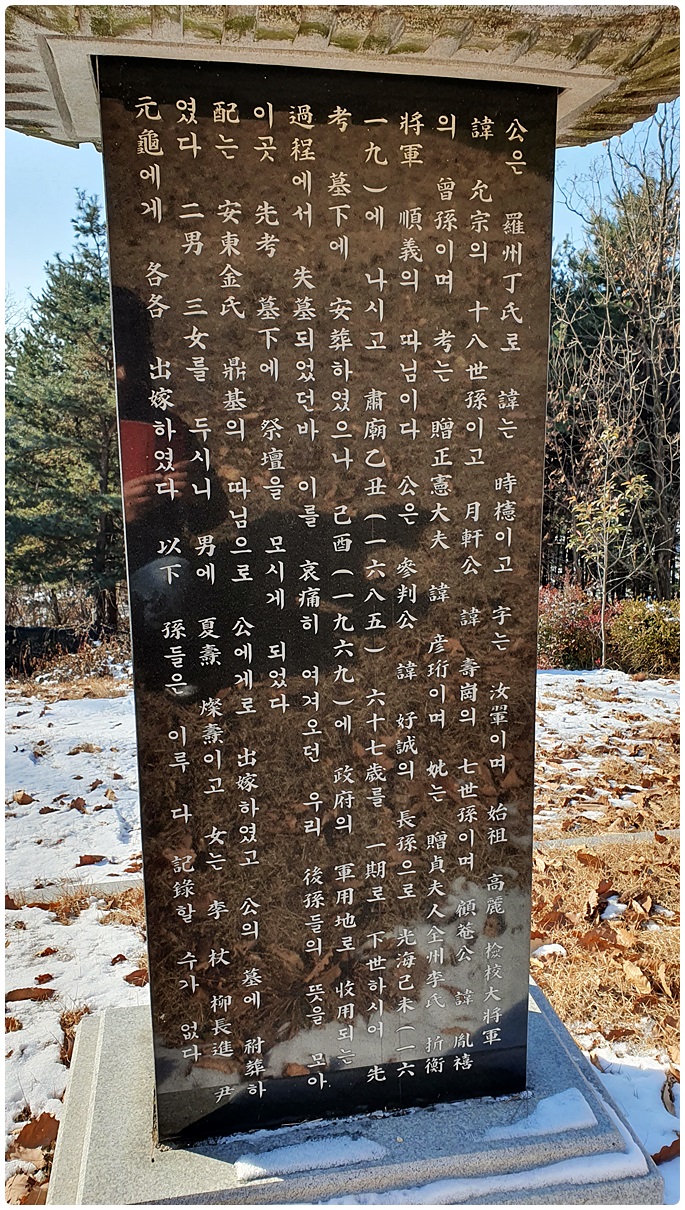 公은 羅州丁氏로 諱는 時檍이고 字는 汝翬이며 始祖 高麗 檢校大將軍
諱 允宗의 十八世孫이고 月軒公 諱 壽崗의 七世孫이며 顧菴公 諱 胤禧
의 曾孫이며 考는 贈正憲大夫 諱 彦珩이며 妣는 贈貞夫人全州李氏 折衝
將軍 順義의 따님이다 公은 參判公 諱 好誠의 長孫으로 光海己未(一六
一九)에 나시고 肅廟乙丑(一六八五) 六十七歲를 一期로 下世하시어 先
考 墓下에 安葬하였으나 己酉(一九六九)에 政府의 軍用地로 收用되는
過程에서 失墓되었던바 이를 哀痛히 여겨오던 우리 後孫들의 뜻을 모아
이곳 先考 墓下에 祭壇을 모시게 되었다
配는 安東金氏 鼎基의 따님으로 公에게로 出嫁하였고 公의 墓에 祔葬하
였다 二男 三女를 두시니 男에 夏燾 燦燾이고 女는 李杖 柳長進 尹
元龜에게 各各 出嫁하였다 以下 孫들은 이루 다 記錄할 수가 없다